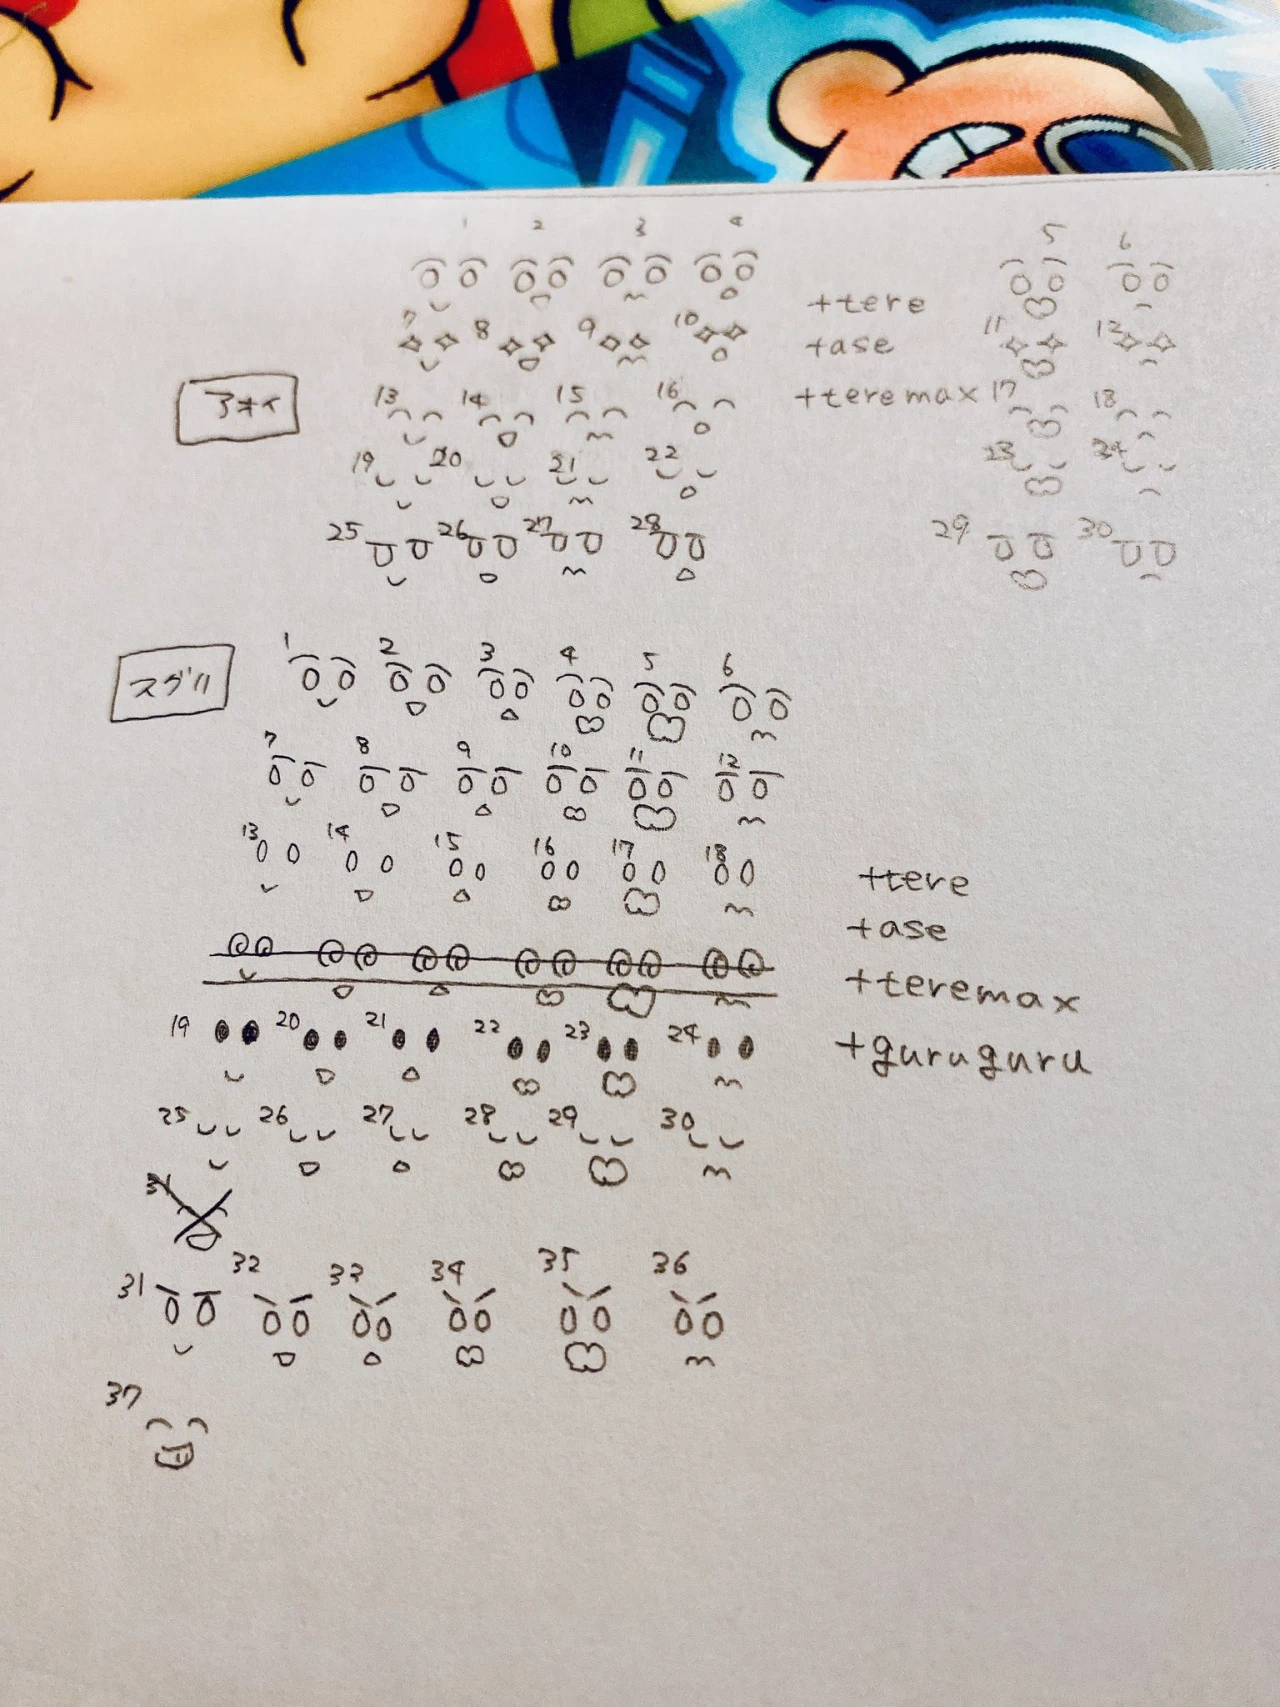 1 2 3 4 5 6
+tere
7 8 9 10 +ase 11 12
アオイ 13 14 15 16 +teremax 17 18
19 20 21 22 23 24
25 26 27 28 29 30
スグリ 1 2 3 4 5 6
7 8 9 10 11 12
13 14 15 16 17 18
+tere
+ase
+teremax
19 20 21 22 23 24 +guruguru
25 26 27 28 29 30
31
31 32 33 34 35 36
37